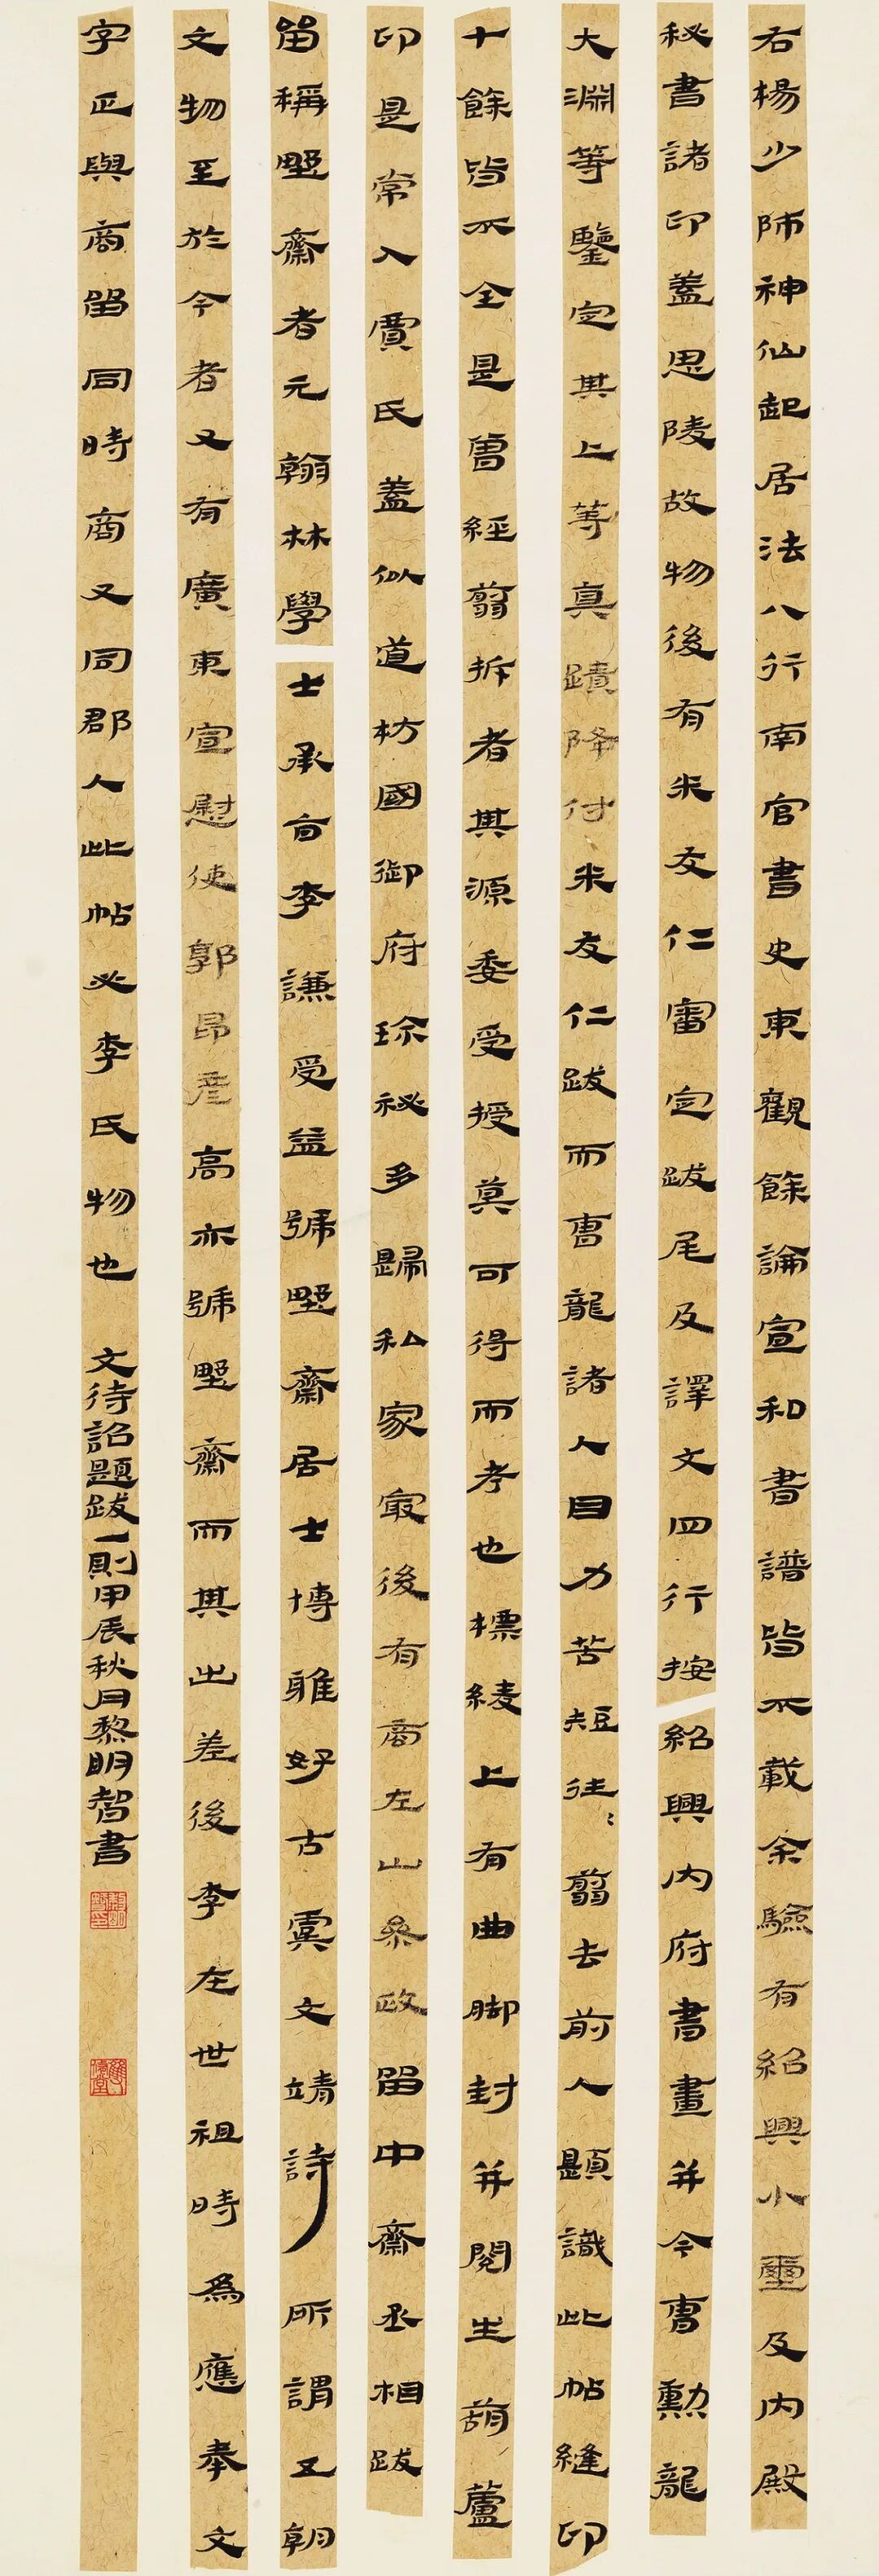 右楊少師神仙起居法八行南宫書史東觀餘論宣和書譜皆不載余驗有紹興小璽及内殿
秘書諸印蓋思陵故物後有米友仁審定跋尾及譯文四行按紹興内府書畫并令曹勲龍
大淵等鑒定其上等真蹟降付米友仁跋而曹龍諸人目力苦短往〻翦去前人題識此帖縫印
十餘皆不全是曾經翦拆者其源委受授莫可得而考也標綾上有曲脚封并閱生葫蘆
印是常入賈氏蓋似道枋國御府珎秘多歸私家最後有商左山叅政留中齋丞相跋
留稱野齋者元翰林學士承旨李謙受益號野齋居士博雅好古虞文靖詩所謂五朝
文物至於今者又有廣東宣慰使郭昂彦高亦號野齋而其出差後李左世祖時為應奉文
字正與商留同時商又同郡人此帖必李氏物也 文待詔題跋一則甲辰秋月黎明智書